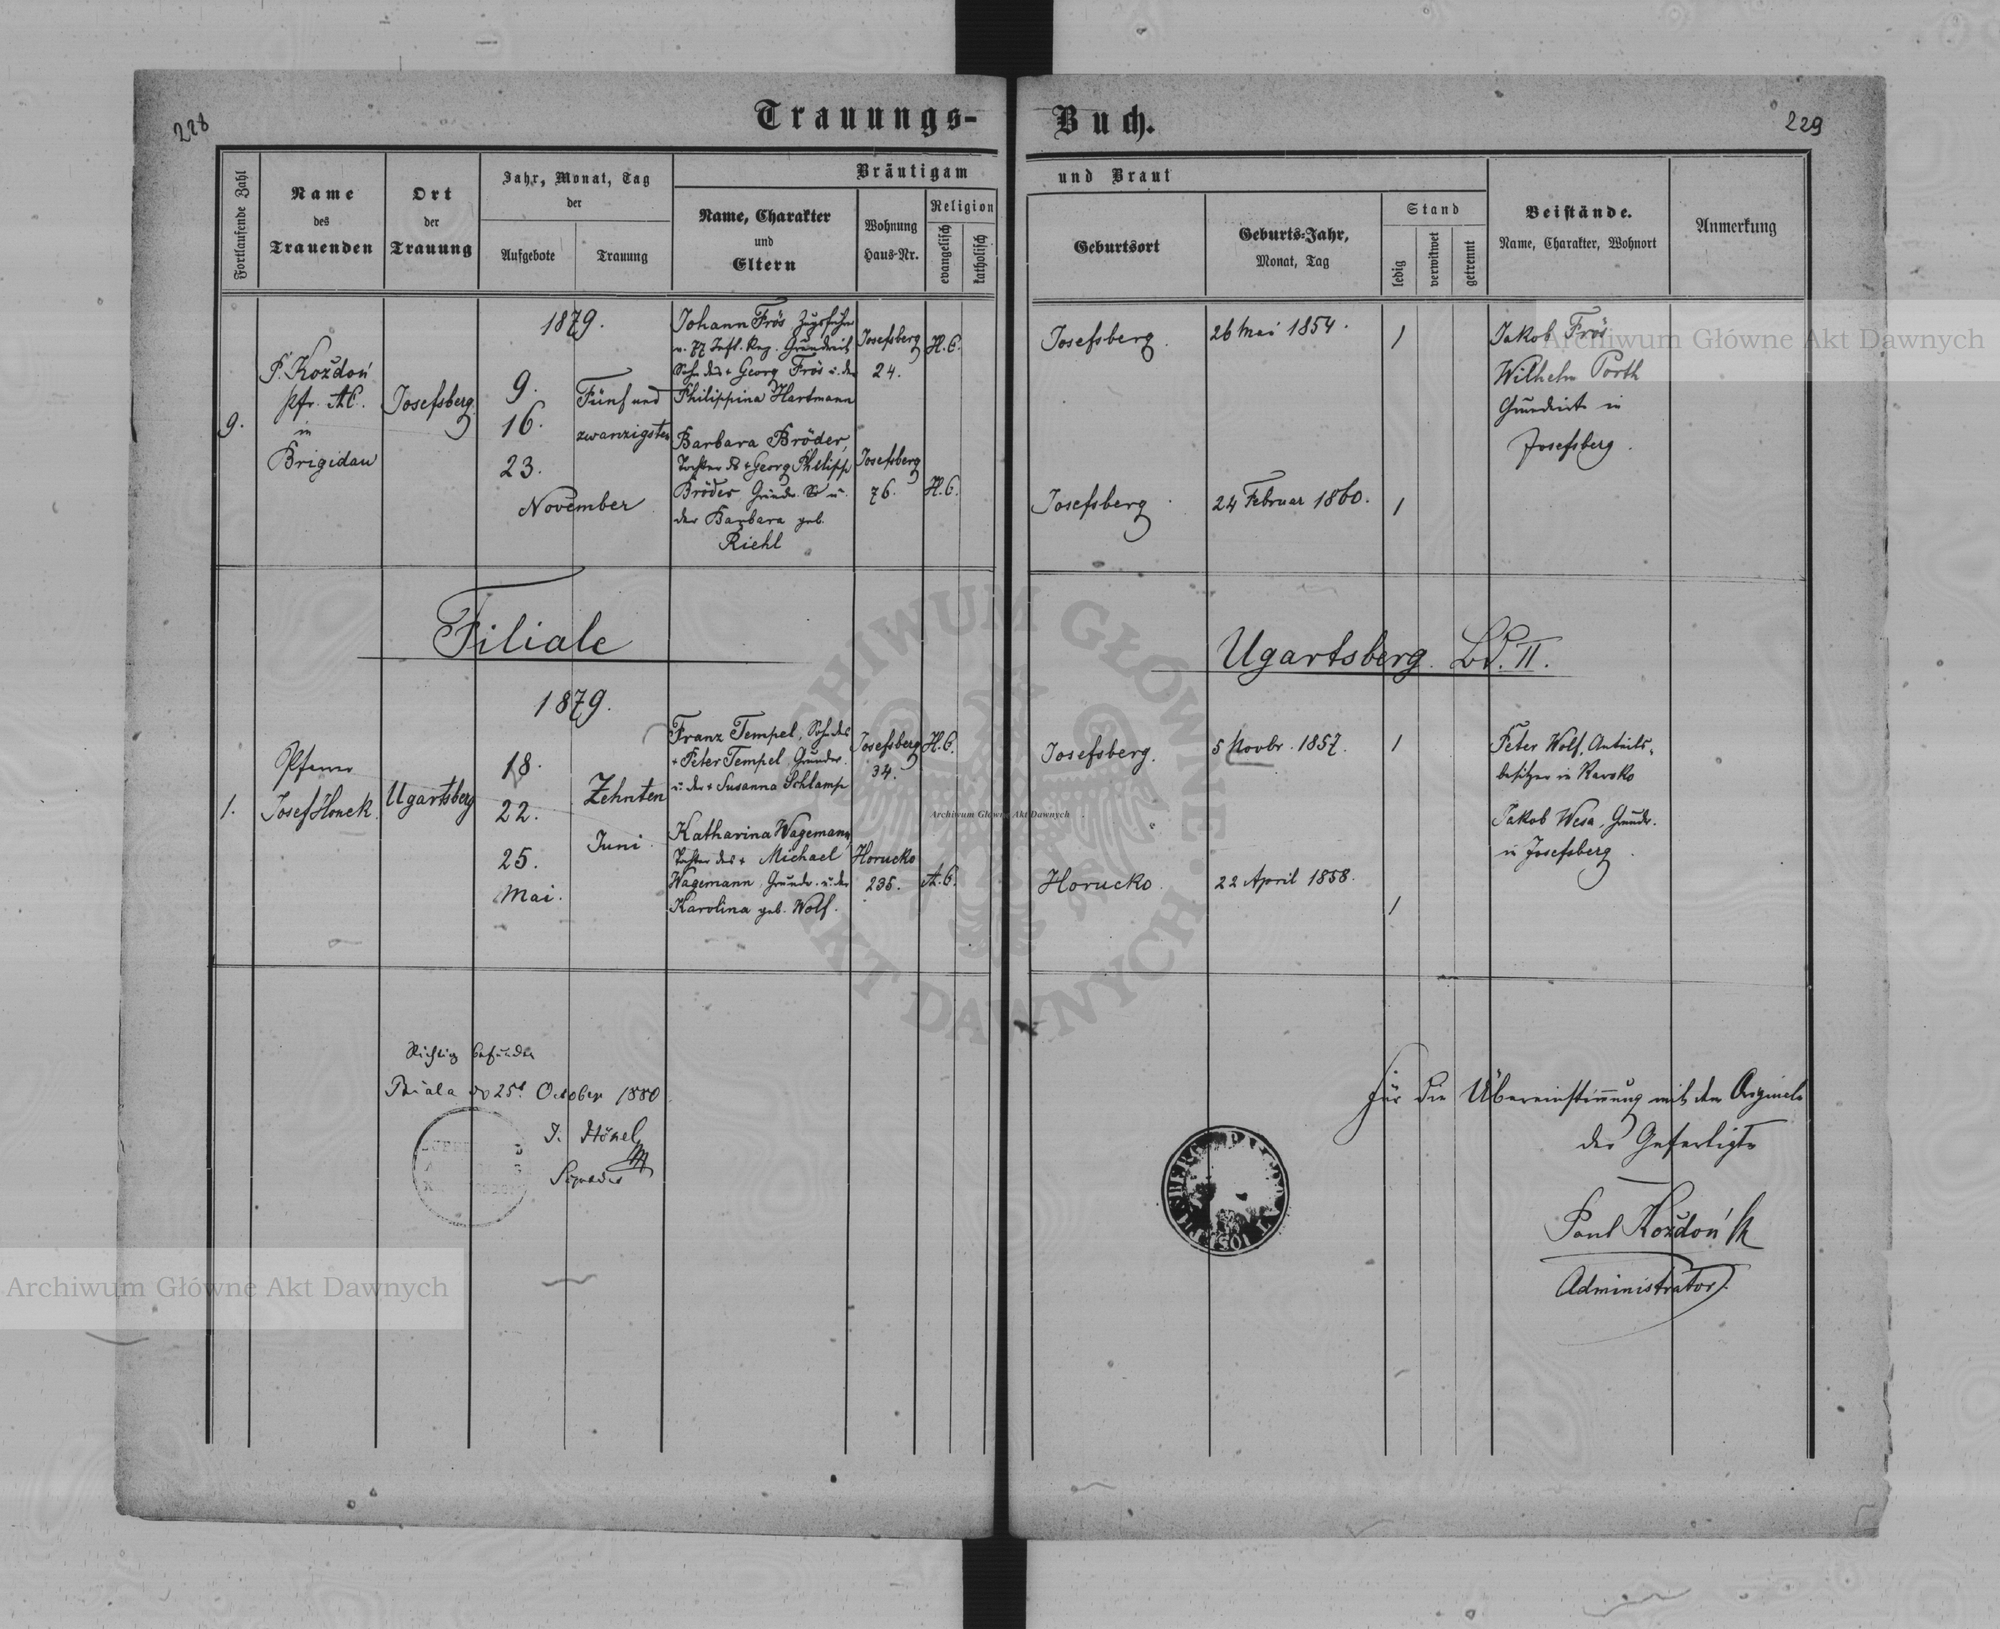 228
Trauungs-
Buch.
229
Fortlaufende Zahl
Name
des
Trauenden
Ort
der
Trauung
Jahr, Monat, Tag
der
Aufgebote
Trauung
Bräutigam
Name, Charakter
und
Eltern
Wohnung
Haus-Nr.
Religion
evangelisch
katholisch
und Braut
Geburtsort
Geburts-Jahr,
Monat, Tag
Stand
ledig
verwitwet
getrennt
Beistände.
Name, Charakter, Wohnort
Anmerkung
9.
P. Koždoń
Pfr. A.C.
in
Brigidau
Josefsberg
1879.
9.
16.
23.
November
Fünf und
zwanzigsten
Johann Frös Zugsführer
v. 77 Inft. Reg. Grundwirt
Sohn des + Georg Frös u. der
Philippina Hartmann
Josefsberg
24.
H.C.
Barbara Bröder,
Tochter ds + Georg Philipp
Bröder Grundw. u.
der Barbara geb.
Riehl
Josefsberg
76.
H.C.
Josefsberg.
26 Mai 1854.
1
Josefsberg
24 Februar 1860.
1
Jakob Frös
Wilhelm Porth
Grundwirte in
Josefsberg.
Filiale
Ugartsberg. Bd. II.
1879.
1.
Pfarrer
Josef Honek.
Ugartsberg
18.
22.
25.
Mai.
Zehnten
Juni.
Franz Tempel, Sohn des
+ Peter Tempel, Grundw.
u. der + Susanna Schlamp
Josefsberg
34.
H.C.
Katharina Wagemann,
Tochter des + Michael
Wagemann, Grundw. u. der
Karolina geb. Wolf.
Horucko
235.
A.C.
Josefsberg.
5 Novbr. 1857.
1
Horucko.
22 April 1858.
1
Peter Wolf, Anteils-
besitzer in Ravsko
Jakob Wesa, Grundw.
in Josefsberg.
Richtig befunden
Biala den 25t October 1880
J. Hönel
Für die Übereinstimmung mit dem Originale
der Gefertigte
Paul Koždoń
Administrator.
Archiwum Główne Akt Dawnych
Archiwum Główne Akt Dawnych
Archiwum Główne Akt Dawnych
ARCHIWUM GŁÓWNE AKT DAWNYCH